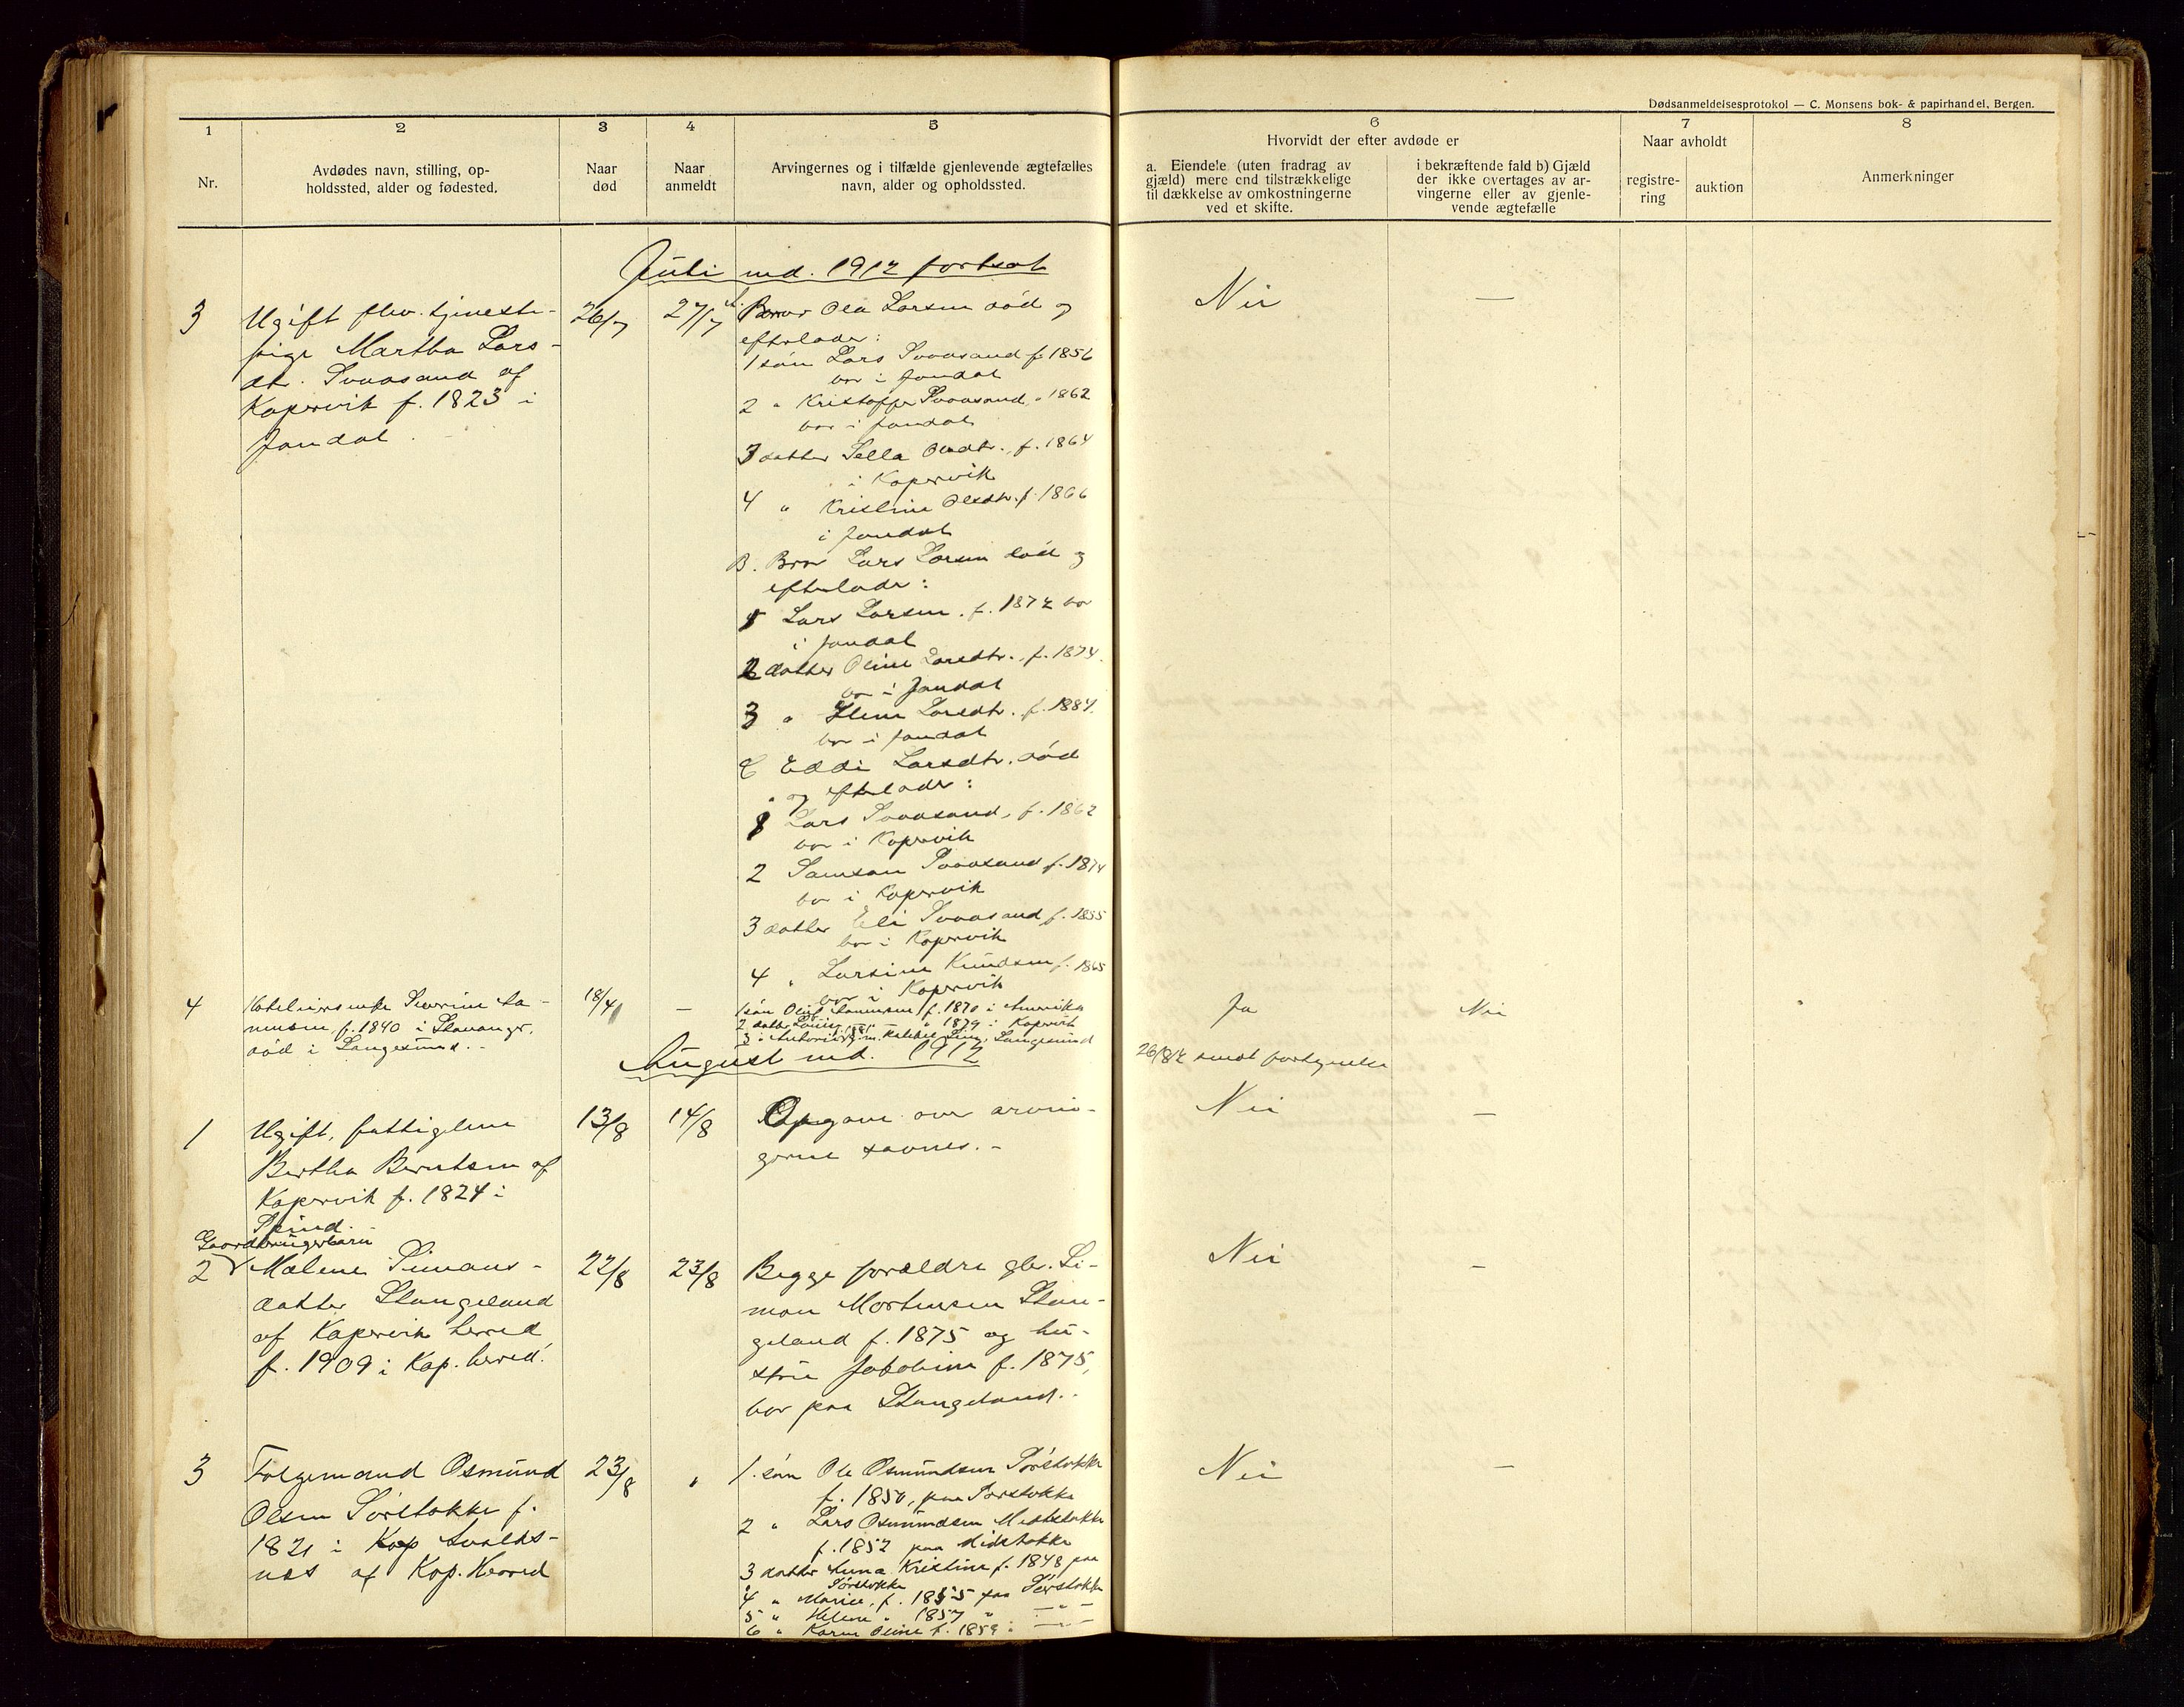 Dødsanmeldelsesprotokol — C. Monsens bok- & papirhandel, Bergen.
1
Nr.
2
Avdødes navn, stilling, op-
holdssted, alder og fødested.
3
Naar
død
4
Naar
anmeldt
5
Arvingernes og i tilfælde gjenlevende ægtefælles
navn, alder og opholdssted.
6
Hvorvidt der efter avdøde er
a. Eiendele (uten fradrag av
gjæld) mere end tilstrækkelige
til dækkelse av omkostningerne
ved et skifte.
i bekræftende fald b) Gjæld
der ikke overtages av ar-
vingerne eller av gjenle-
vende ægtefælle
7
Naar avholdt
registre-
ring
auktion
8
Anmerkninger
Juli md. 1912 fortsat
3
Ugift fhv. tjeneste-
pige Martha Lars-
dtr. Svaasand af
Kopervik f. 1823 i
Jondal.
26/7
27/7
A. Bror Ola Larsen død og
efterlader:
1 søn Lars Svaasand f. 1856
bor i Jondal
2 " Kristoffer Svaasand " 1862
bor i Jondal
3 datter Sella Olsdtr., f. 1864
i Kopervik
4 " Kristine Olsdtr. f. 1866
i Jondal
B. Bror Lars Larsen død og
efterlader:
1 Lars Larsen. f. 1872 bor
i Jondal
2 datter Oline Larsdtr., f. 1874.
bor i Jondal
3 " Larsdtr. f. 1884.
bor i Jondal
C Eddi Larsdtr. død
og efterlader:
1 Lars Svaasand, f. 1862
bor i Kopervik
2 Samson Svaasand f. 1874
bor i Kopervik
3 datter Eli Svaasand f. 1855
bor i Kopervik
4 " Larsine Knudsen f. 1865
bor i Kopervik
Nei —
4
Hotelierenke Severine Sa-
muelsen, f. 1840 i Stavanger,
død i Langesund.
18/4
—
1 søn Oluf f. 1870 i Amerika
2 datter " 1879 i Kopervik
3 " Langesund
Ja
Nei
26/8 12 sendt fortegnelse
August md. 1912
1
Ugift, fattiglem
Bertha Berntsen af
Kopervik f. 1824 i
13/8
14/8
Opgave over arvin-
gerne savnes. -
Nei —
Gaardbrugerbarn
2
Malene Simons-
datter Stangeland
af Kopervik herred
f. 1909 i Kop. herred.
22/8
23/8
Begge forældre gbr. Si-
mon Mortensen Stan-
geland f. 1875 og hu-
stru Jakobine f. 1875,
bor paa Stangeland.
Nei —
3
Folgemand Osmund
Olsen Sørstokke f.
1821 i Kop Avalds-
nes af Kop. Herred
23/8
"
1. søn Ole Osmundsen Sørstokke
f. 1850, paa Sørstokke
2 " Lars Osmundsen Midtstokke
f. 1852 paa Midstokke
3 datter Anna Kristine f. 1848 paa
Sørstokke
4 " Marie, f. 1855 paa Sørstokke
5 " Helene " 1857 " — " —
6 " Karen Oline f. 1859 " — " —
Nei —